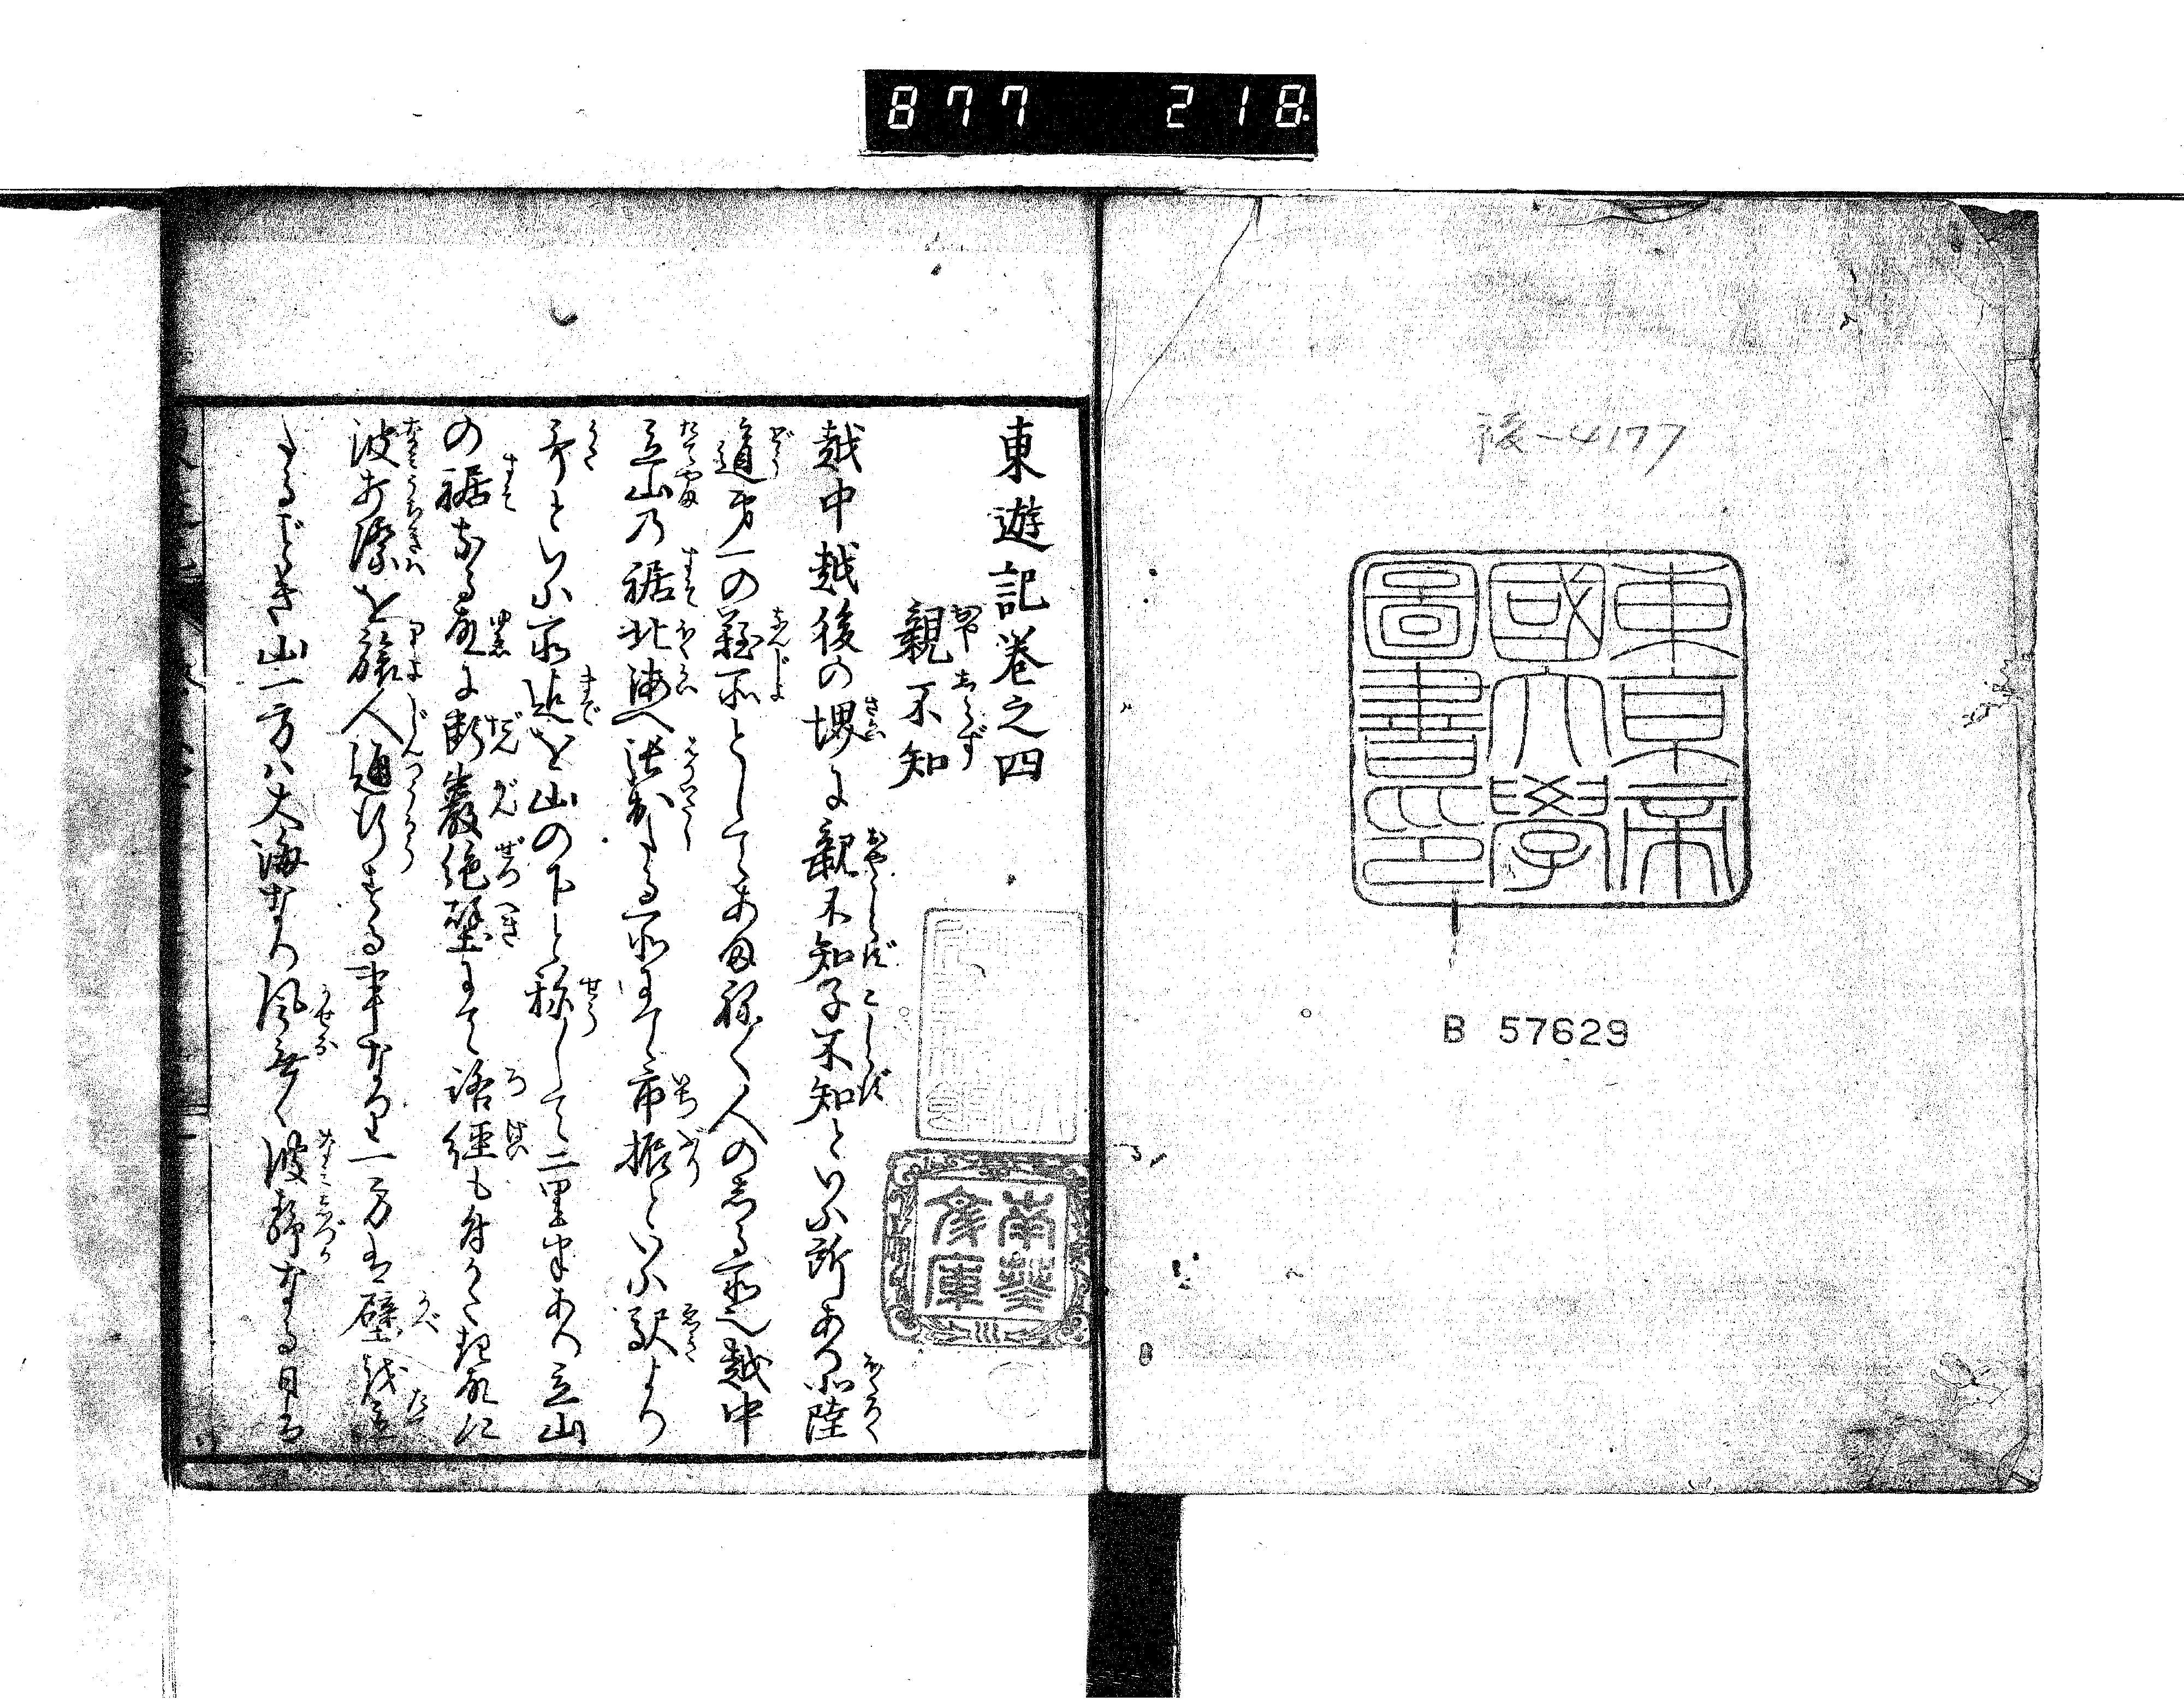 877 218
後-4177
東京帝
國大學
圖書印
B 57629
東遊記巻之四
親不知
越中越後の堺に親不知子不知といふ所あり北陸
道第一の難所としてあまねく人のしる所也越中
立山乃裾北海へ張出たる所にて市振といふ駅より
哥といふ所迄を山の下と称して二里半あり立山
の裾なる故に断巌絶壁にて路径も付かたき故に
波打際を旅人通行する事なり一方は壁を立
たるごとき山一方ハ大海なり風無く波静なる日は
南葵
文庫